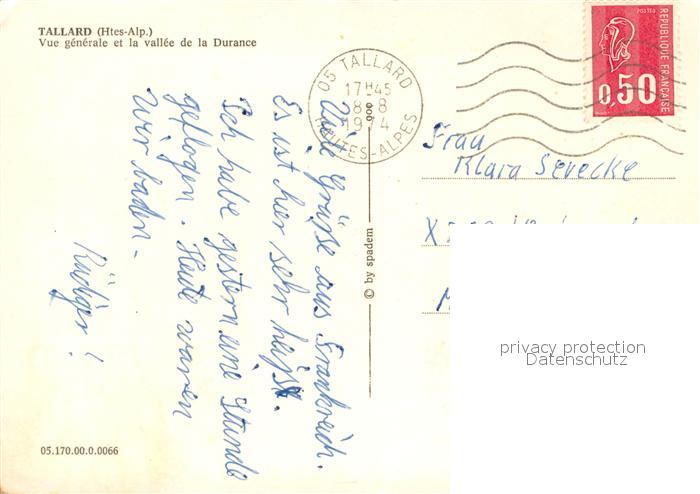 TALLARD (Htes-Alp.)
Vue générale et la vallée de la Durance
05 TALLARD
17H45
8-8
1974
HAUTES-ALPES
POSTES
REPUBLIQUE FRANÇAISE
0,50
Viele Grüße aus Frankreich.
Es ist hier sehr heiß.
Ich habe gestern eine Stunde
geflogen. Heute waren
wir baden.
Rüdiger!
Frau
Klara Sevecke
© by spadem
privacy protection
Datenschutz
05.170.00.0.0066